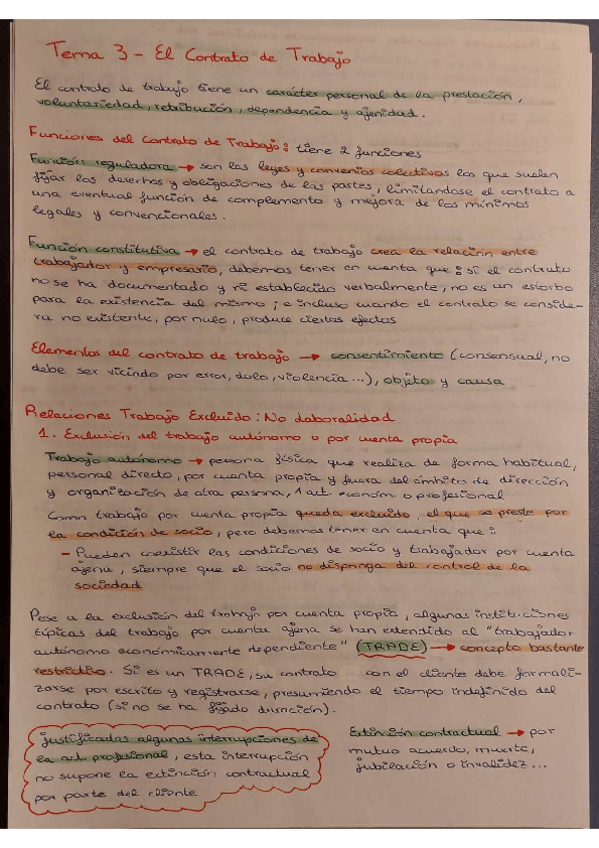 Tema 3 - El Contrato de Trabajo
El contrato de trabajo tiene un carácter personal de la prestación,
voluntariedad, retribución, dependencia y ajenidad.
Funciones del Contrato de Trabajo: tiene 2 funciones
Función reguladora → son las leyes y convenios colectivos los que suelen
fijar los derechos y obligaciones de las partes, limitandose el contrato a
una eventual función de complemento y mejora de los mínimos
legales y convencionales.
Función constitutiva → el contrato de trabajo crea la relación entre
trabajador y empresario, debemos tener en cuenta que: si el contrato
no se ha documentado y ni establecido verbalmente, no es un estorbo
para la existencia del mismo; e incluso cuando el contrato se conside-
ra no existente, por nulo, produce ciertos efectos
Elementos del contrato de trabajo → consentimiento (consensual, no
debe ser viciado por error, dolo, violencia...), objeto y causa
Relaciones Trabajo Excluido: No Laboralidad
1. Exclusión del trabajo autónomo o por cuenta propia
Trabajo autónomo → persona física que realiza de forma habitual,
personal directo, por cuenta propia y fuera del ámbito de dirección
y organización de otra persona, 1 act. económ. o profesional
Como trabajo por cuenta propia queda excluido, el que se preste por
la condición de socio, pero debemos tener en cuenta que:
- Pueden coexistir las condiciones de socio y trabajador por cuenta
ajena, siempre que el socio no disponga del control de la
sociedad
Pese a la exclusión del trabajo por cuenta propia, algunas instituciones
típicas del trabajo por cuenta ajena se han extendido al "trabajador
autónomo económicamente dependiente" (TRADE) → concepto bastante
restrictivo. Si es un TRADE, su contrato con el cliente debe formali-
zarse por escrito y registrarse, presumiendo el tiempo indefinido del
contrato (si no se ha fijado duración).
justificadas algunas interrupciones de
la act. profesional, esta interrupción
no supone la extinción contractual
por parte del cliente
Extinción contractual → por
mutuo acuerdo, muerte,
jubilación o invalidez...